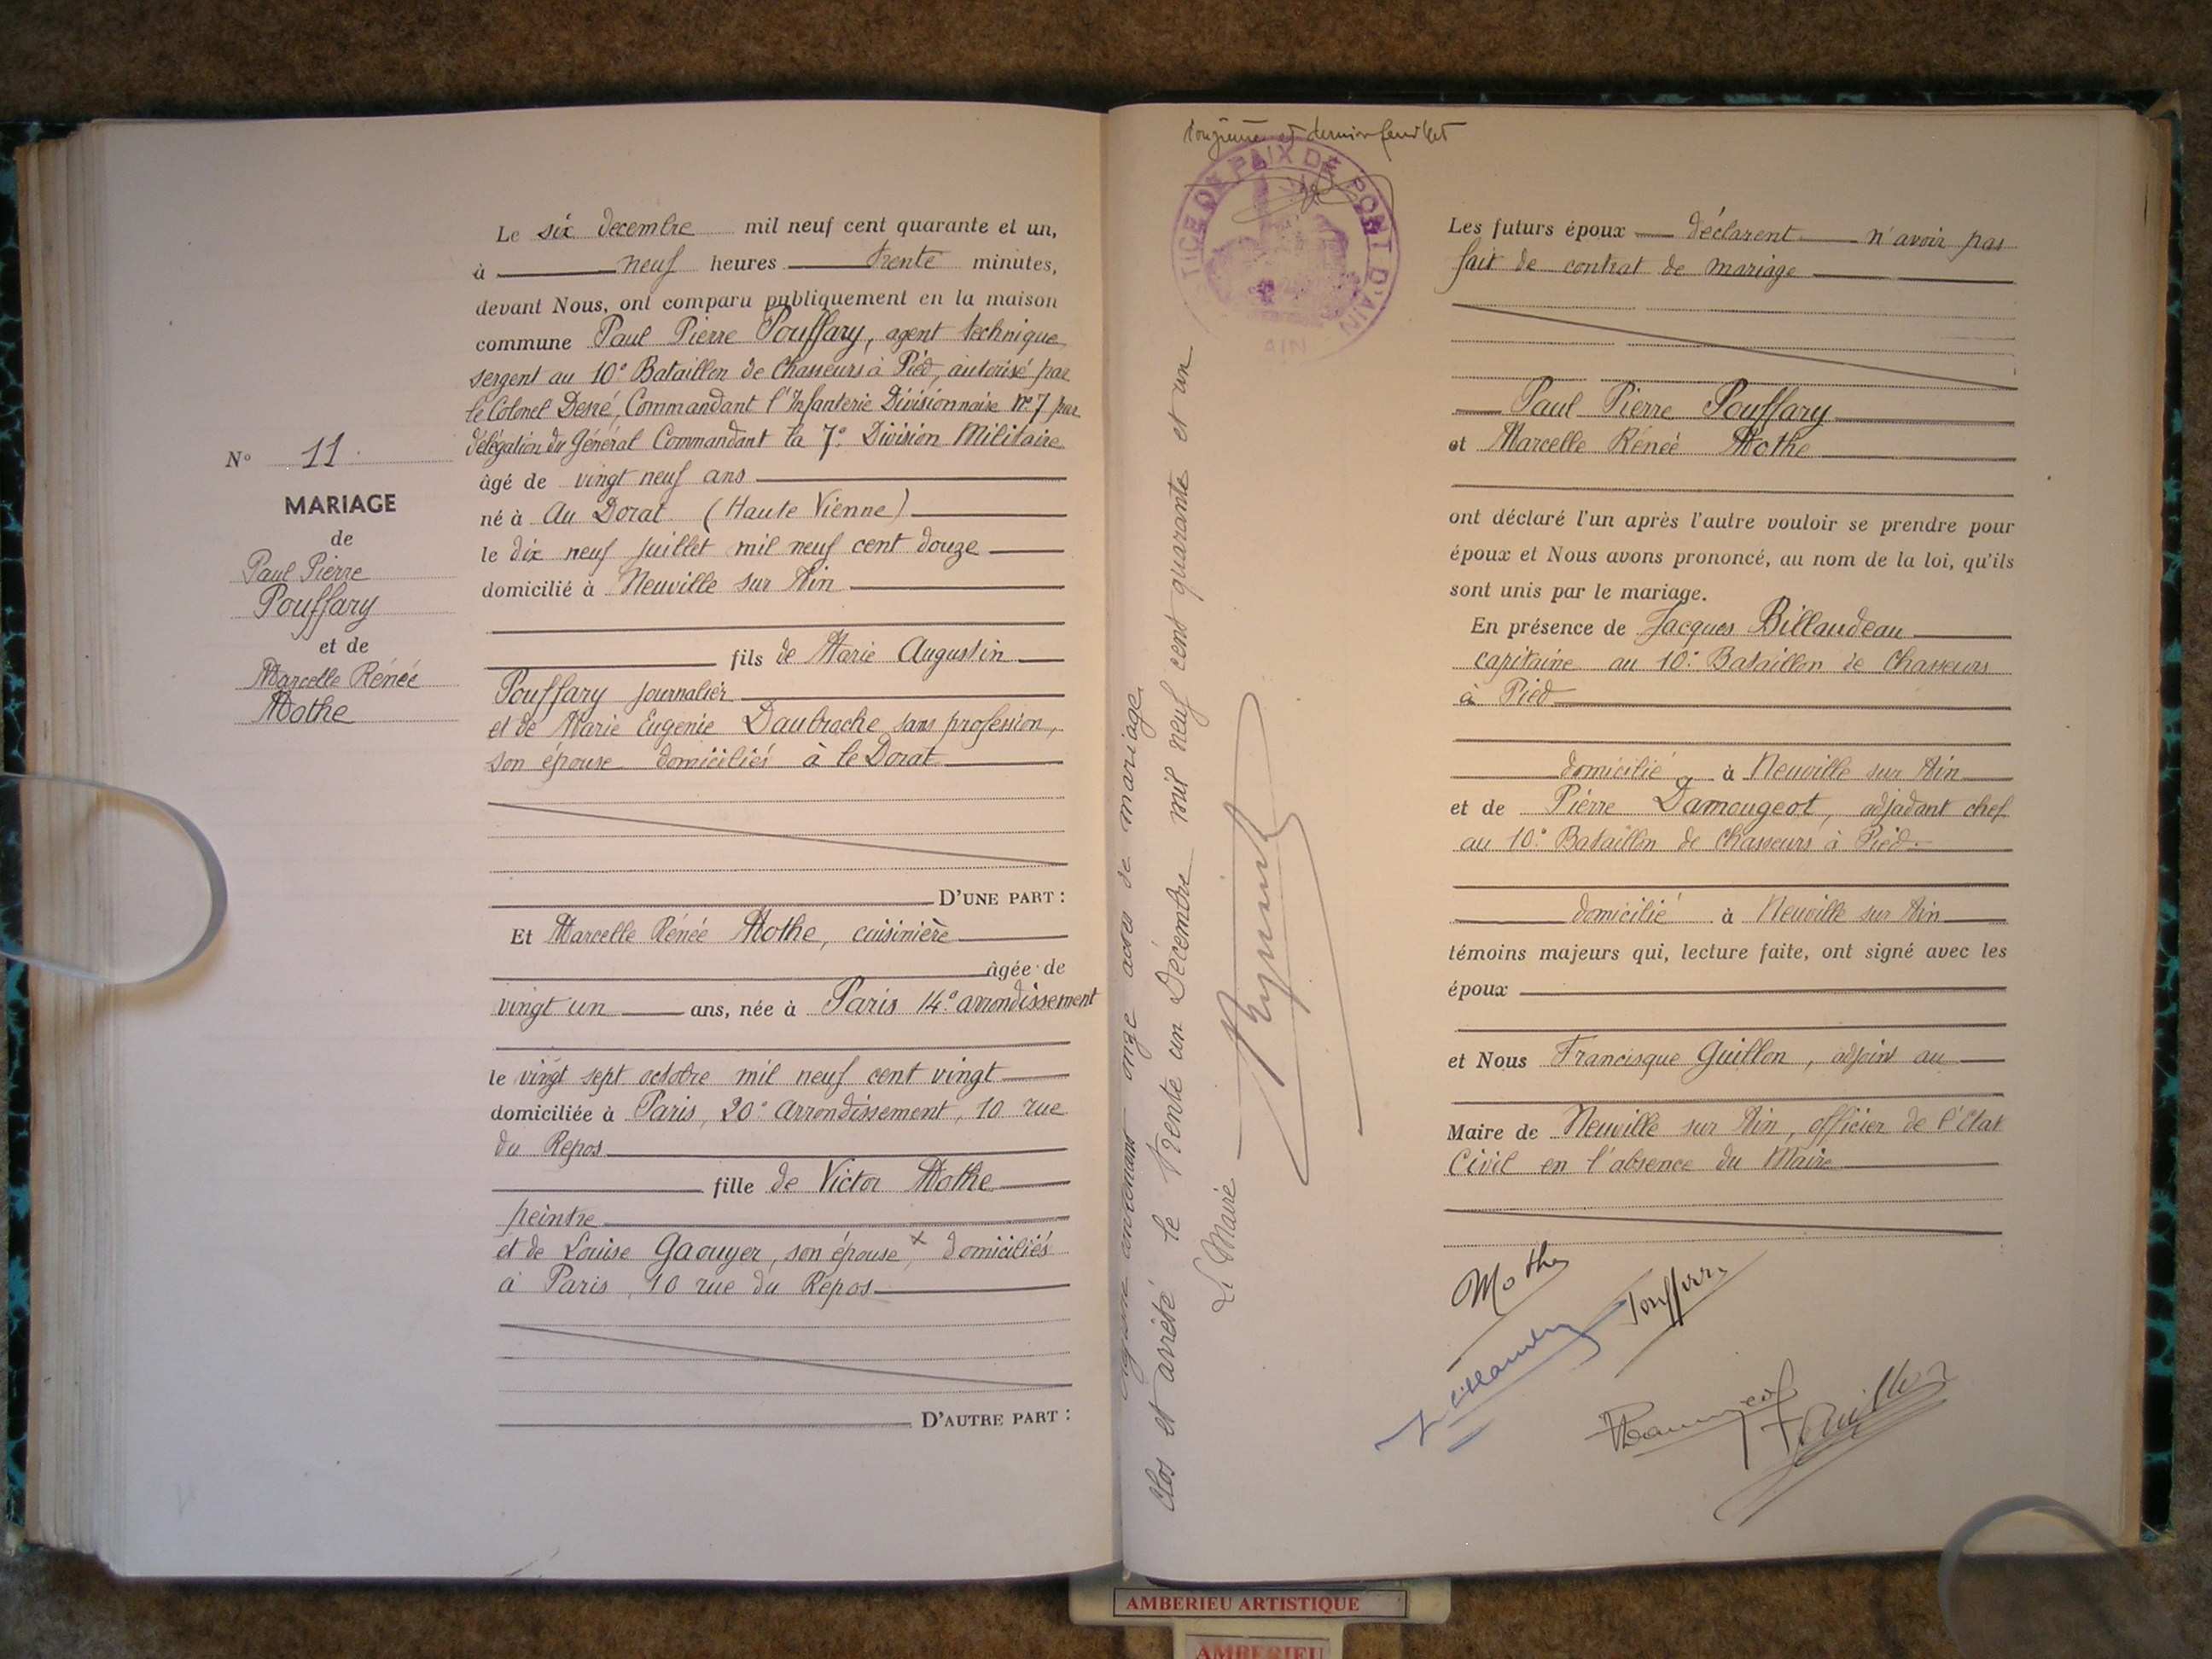 N° 11
MARIAGE
de
Paul Pierre
Pouffary
et de
Marcelle Rénée
Mothe
Le six decembre mil neuf cent quarante et un,
à neuf heures trente minutes,
devant Nous, ont comparu publiquement en la maison
commune Paul Pierre Pouffary, agent technique
sergent au 10e Bataillon de Chasseurs à Pied, autorisé par
le Colonel Desré, Commandant l'Infanterie Divisionnaire N°7 par
délégation du Général Commandant la 7e Division Militaire
âgé de vingt neuf ans
né à Au Dorat (Haute Vienne)
le dix neuf juillet mil neuf cent douze
domicilié à Neuville sur Ain
fils de Marie Augustin
Pouffary journalier
et de Marie Eugenie Daubroche sans profession,
son épouse domiciliés à le Dorat
D'UNE PART :
Et Marcelle Rénée Mothe, cuisinière
âgée de
vingt un ans, née à Paris 14e arrondissement
le vingt sept octobre mil neuf cent vingt
domiciliée à Paris, 20e arrondissement, 10 rue
du Repos
fille de Victor Mothe
peintre
et de Louise Gaouyer, son épouse x, domiciliés
à Paris, 10 rue du Repos
D'AUTRE PART :
onze actes de mariage.
Clos et arrêté le trente un Décembre mil neuf cent quarante et un
Le Maire
et dernier feuillet
TICE DE PAIX DE PONT D'AIN
AIN
Les futurs époux déclarent n'avoir pas
fait de contrat de mariage
Paul Pierre Pouffary
et Marcelle Rénée Mothe
ont déclaré l'un après l'autre vouloir se prendre pour
époux et Nous avons prononcé, au nom de la loi, qu'ils
sont unis par le mariage.
En présence de Jacques Billaudeau
capitaine au 10e Bataillon de Chasseurs
à Pied
domicilié à Neuville sur Ain
et de Pierre Damougeot, adjadant chef
au 10e Bataillon de Chasseurs à Pied
domicilié à Neuville sur Ain
témoins majeurs qui, lecture faite, ont signé avec les
époux
et Nous Francisque Guillon, adjoint au
Maire de Neuville sur Ain, officier de l'Etat
Civil en l'absence du Maire
Mothe
AMBERIEU ARTISTIQUE
AMBERIEU